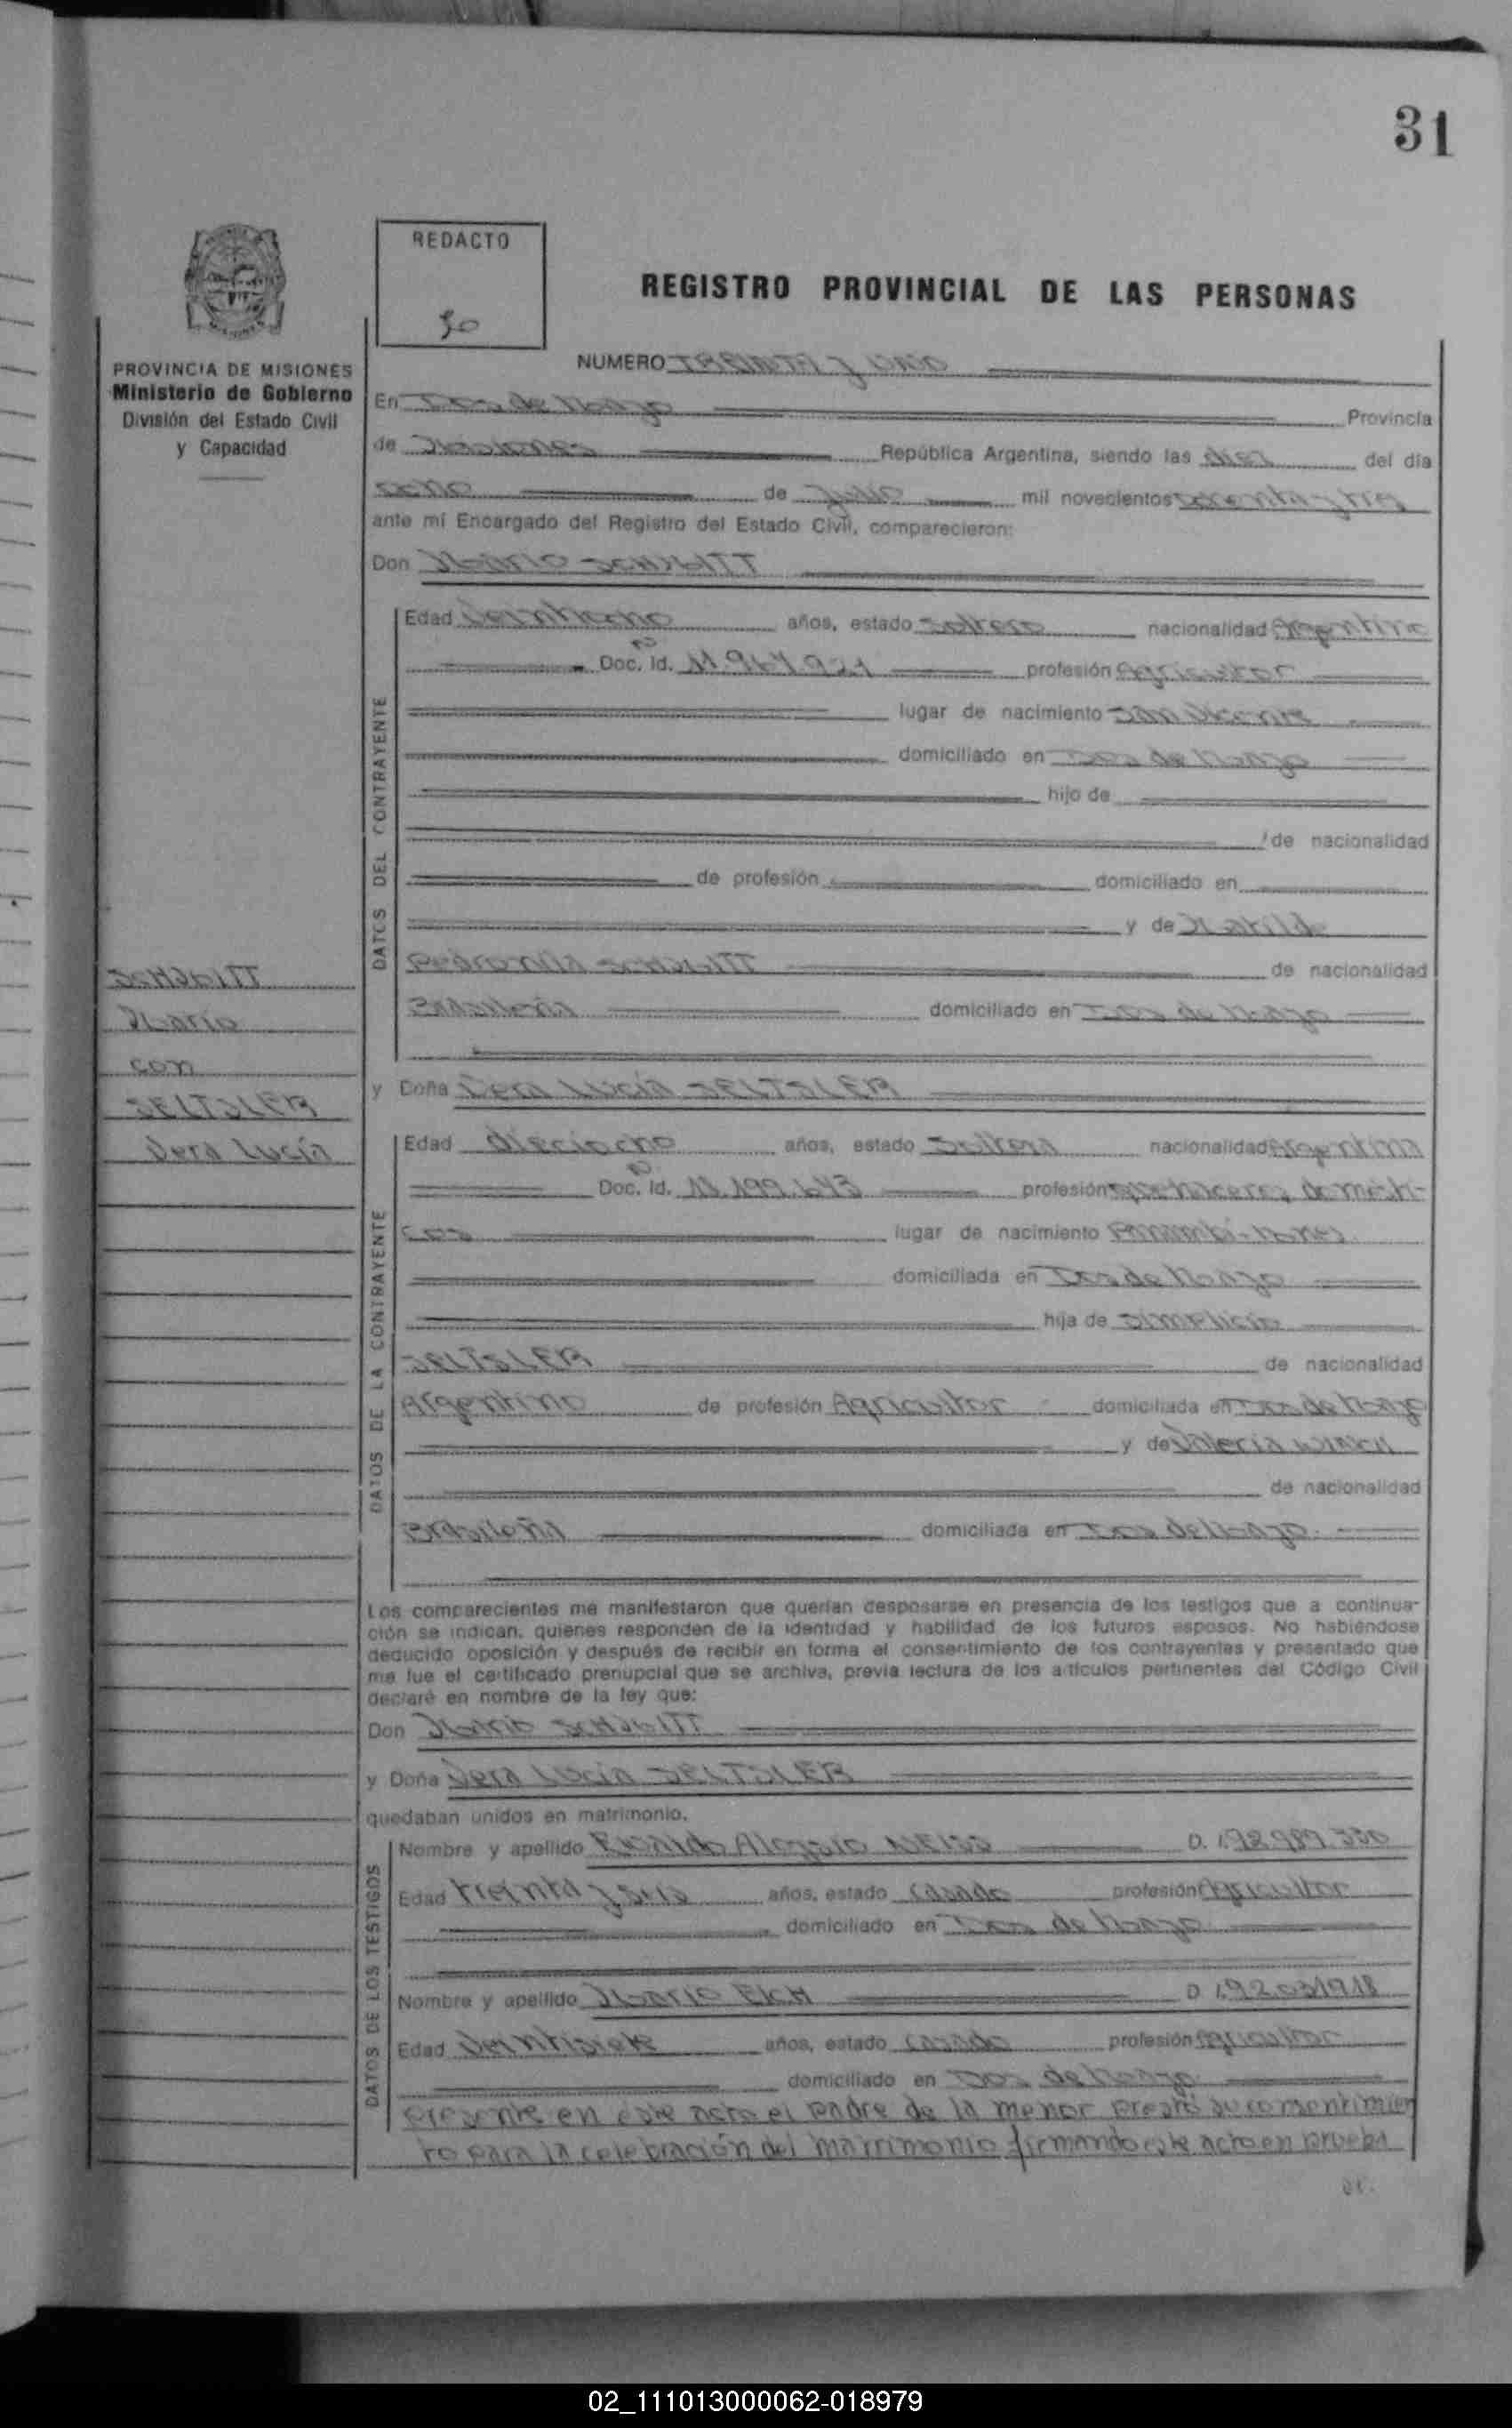 31
REDACTO
30
REGISTRO PROVINCIAL DE LAS PERSONAS
PROVINCIA DE MISIONES
Ministerio de Gobierno
División del Estado Civil
y Capacidad
NUMERO TREINTA y UNO
En Dos de Mayo Provincia
de Misiones República Argentina, siendo las diez del día
ocho de Julio mil novecientos ochenta y tres
ante mí Encargado del Registro del Estado Civil, comparecieron:
Don Mario SCHMITT
DATOS DEL CONTRAYENTE
Edad Veintiocho años, estado Soltero nacionalidad Argentina
Doc. Id. 11.967.921 profesión Agricultor
lugar de nacimiento San Vicente
domiciliado en Dos de Mayo
hijo de
de nacionalidad
de profesión domiciliado en
y de Matilde
Pedronila SCHMITT de nacionalidad
Brasileña domiciliado en Dos de Mayo
SCHMITT
Mario
con
SELTSLER
Vera Lucía
y Doña Vera Lucía SELTSLER
DATOS DE LA CONTRAYENTE
Edad dieciocho años, estado Soltera nacionalidad Argentina
Doc. Id. profesión quehaceres domésti-
cos lugar de nacimiento Panambí-Mnes
domiciliada en Dos de Mayo
hija de Simplicio
SELTSLER de nacionalidad
Argentino de profesión Agricultor domiciliada en Dos de Mayo
y de Valeria
de nacionalidad
Brasileña domiciliada en Dos de Mayo.
Los comparecientes me manifestaron que querían desposarse en presencia de los testigos que a continua-
ción se indican, quienes responden de la identidad y habilidad de los futuros esposos. No habiéndose
deducido oposición y después de recibir en forma el consentimiento de los contrayentes y presentado que
me fue el certificado prenupcial que se archiva, previa lectura de los artículos pertinentes del Código Civil
declaré en nombre de la ley que:
Don Mario SCHMITT
y Doña Vera Lucía SELTSLER
quedaban unidos en matrimonio.
DATOS DE LOS TESTIGOS
Nombre y apellido NEISS
Edad treinta y seis años, estado casado profesión Agricultor
domiciliado en Dos de Mayo
Nombre y apellido Mario EICH
Edad Veintisiete años, estado casado profesión Agricultor
domiciliado en Dos de Mayo
Presente en este acto el padre de la menor prestó su consentimien
to para la celebración del matrimonio firmando este acto en prueba
02_111013000062-018979